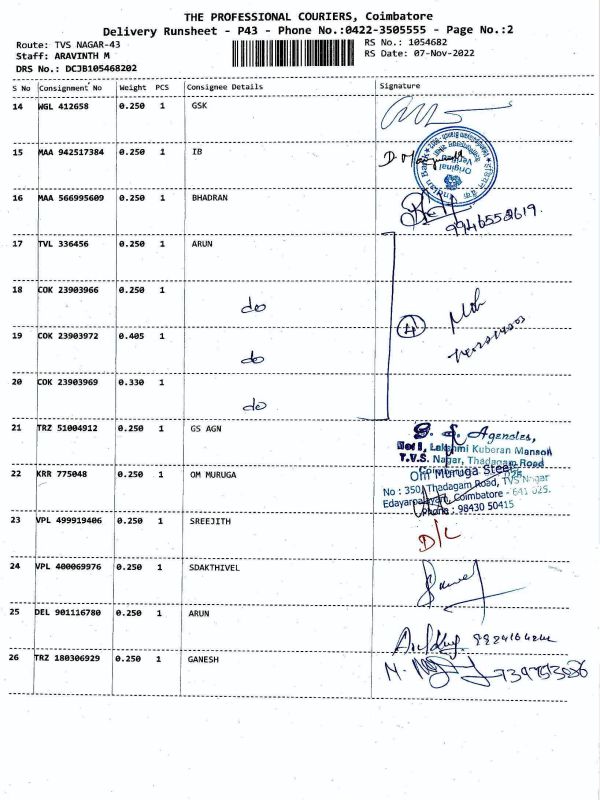 THE PROFESSIONAL COURIERS, Coimbatore
Delivery Runsheet - P43 - Phone No.:0422-3505555 - Page No.:2
Route: TVS NAGAR-43
RS No.: 1054682
Staff: ARAVINTH M
RS Date: 07-Nov-2022
DRS No.: DCJB105468202
S No Consignment No Weight PCS Consignee Details Signature
14 WGL 412658 0.250 1 GSK
15 MAA 942517384 0.250 1 IB
Indian Bank
Original
16 MAA 566995609 0.250 1 BHADRAN
17 TVL 336456 0.250 1 ARUN
18 COK 23903966 0.250 1 do
19 COK 23903972 0.405 1 do
4
20 COK 23903969 0.330 1 do
21 TRZ 51004912 0.250 1 GS AGN
G. S. Agencies,
Lakshmi Kuberan Mansion
T.V.S. Nagar, Thadagam Road
22 KRR 775048 0.250 1 OM MURUGA
Om Muruga Steel
No : 350, Thadagam Road, TVS Nagar
Edayarpalayam, Coimbatore - 641 025.
Phone : 98430 50415
23 VPL 499919406 0.250 1 SREEJITH D/L
24 VPL 400069976 0.250 1 SDAKTHIVEL
25 DEL 901116780 0.250 1 ARUN
26 TRZ 180306929 0.250 1 GANESH